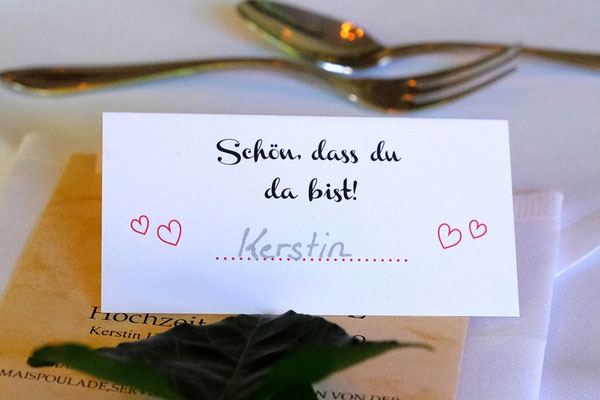 Schön, dass du
da bist!
Kerstin
Hochzeit
Kerstin
MAISPOULADE,SERVI
VON DER